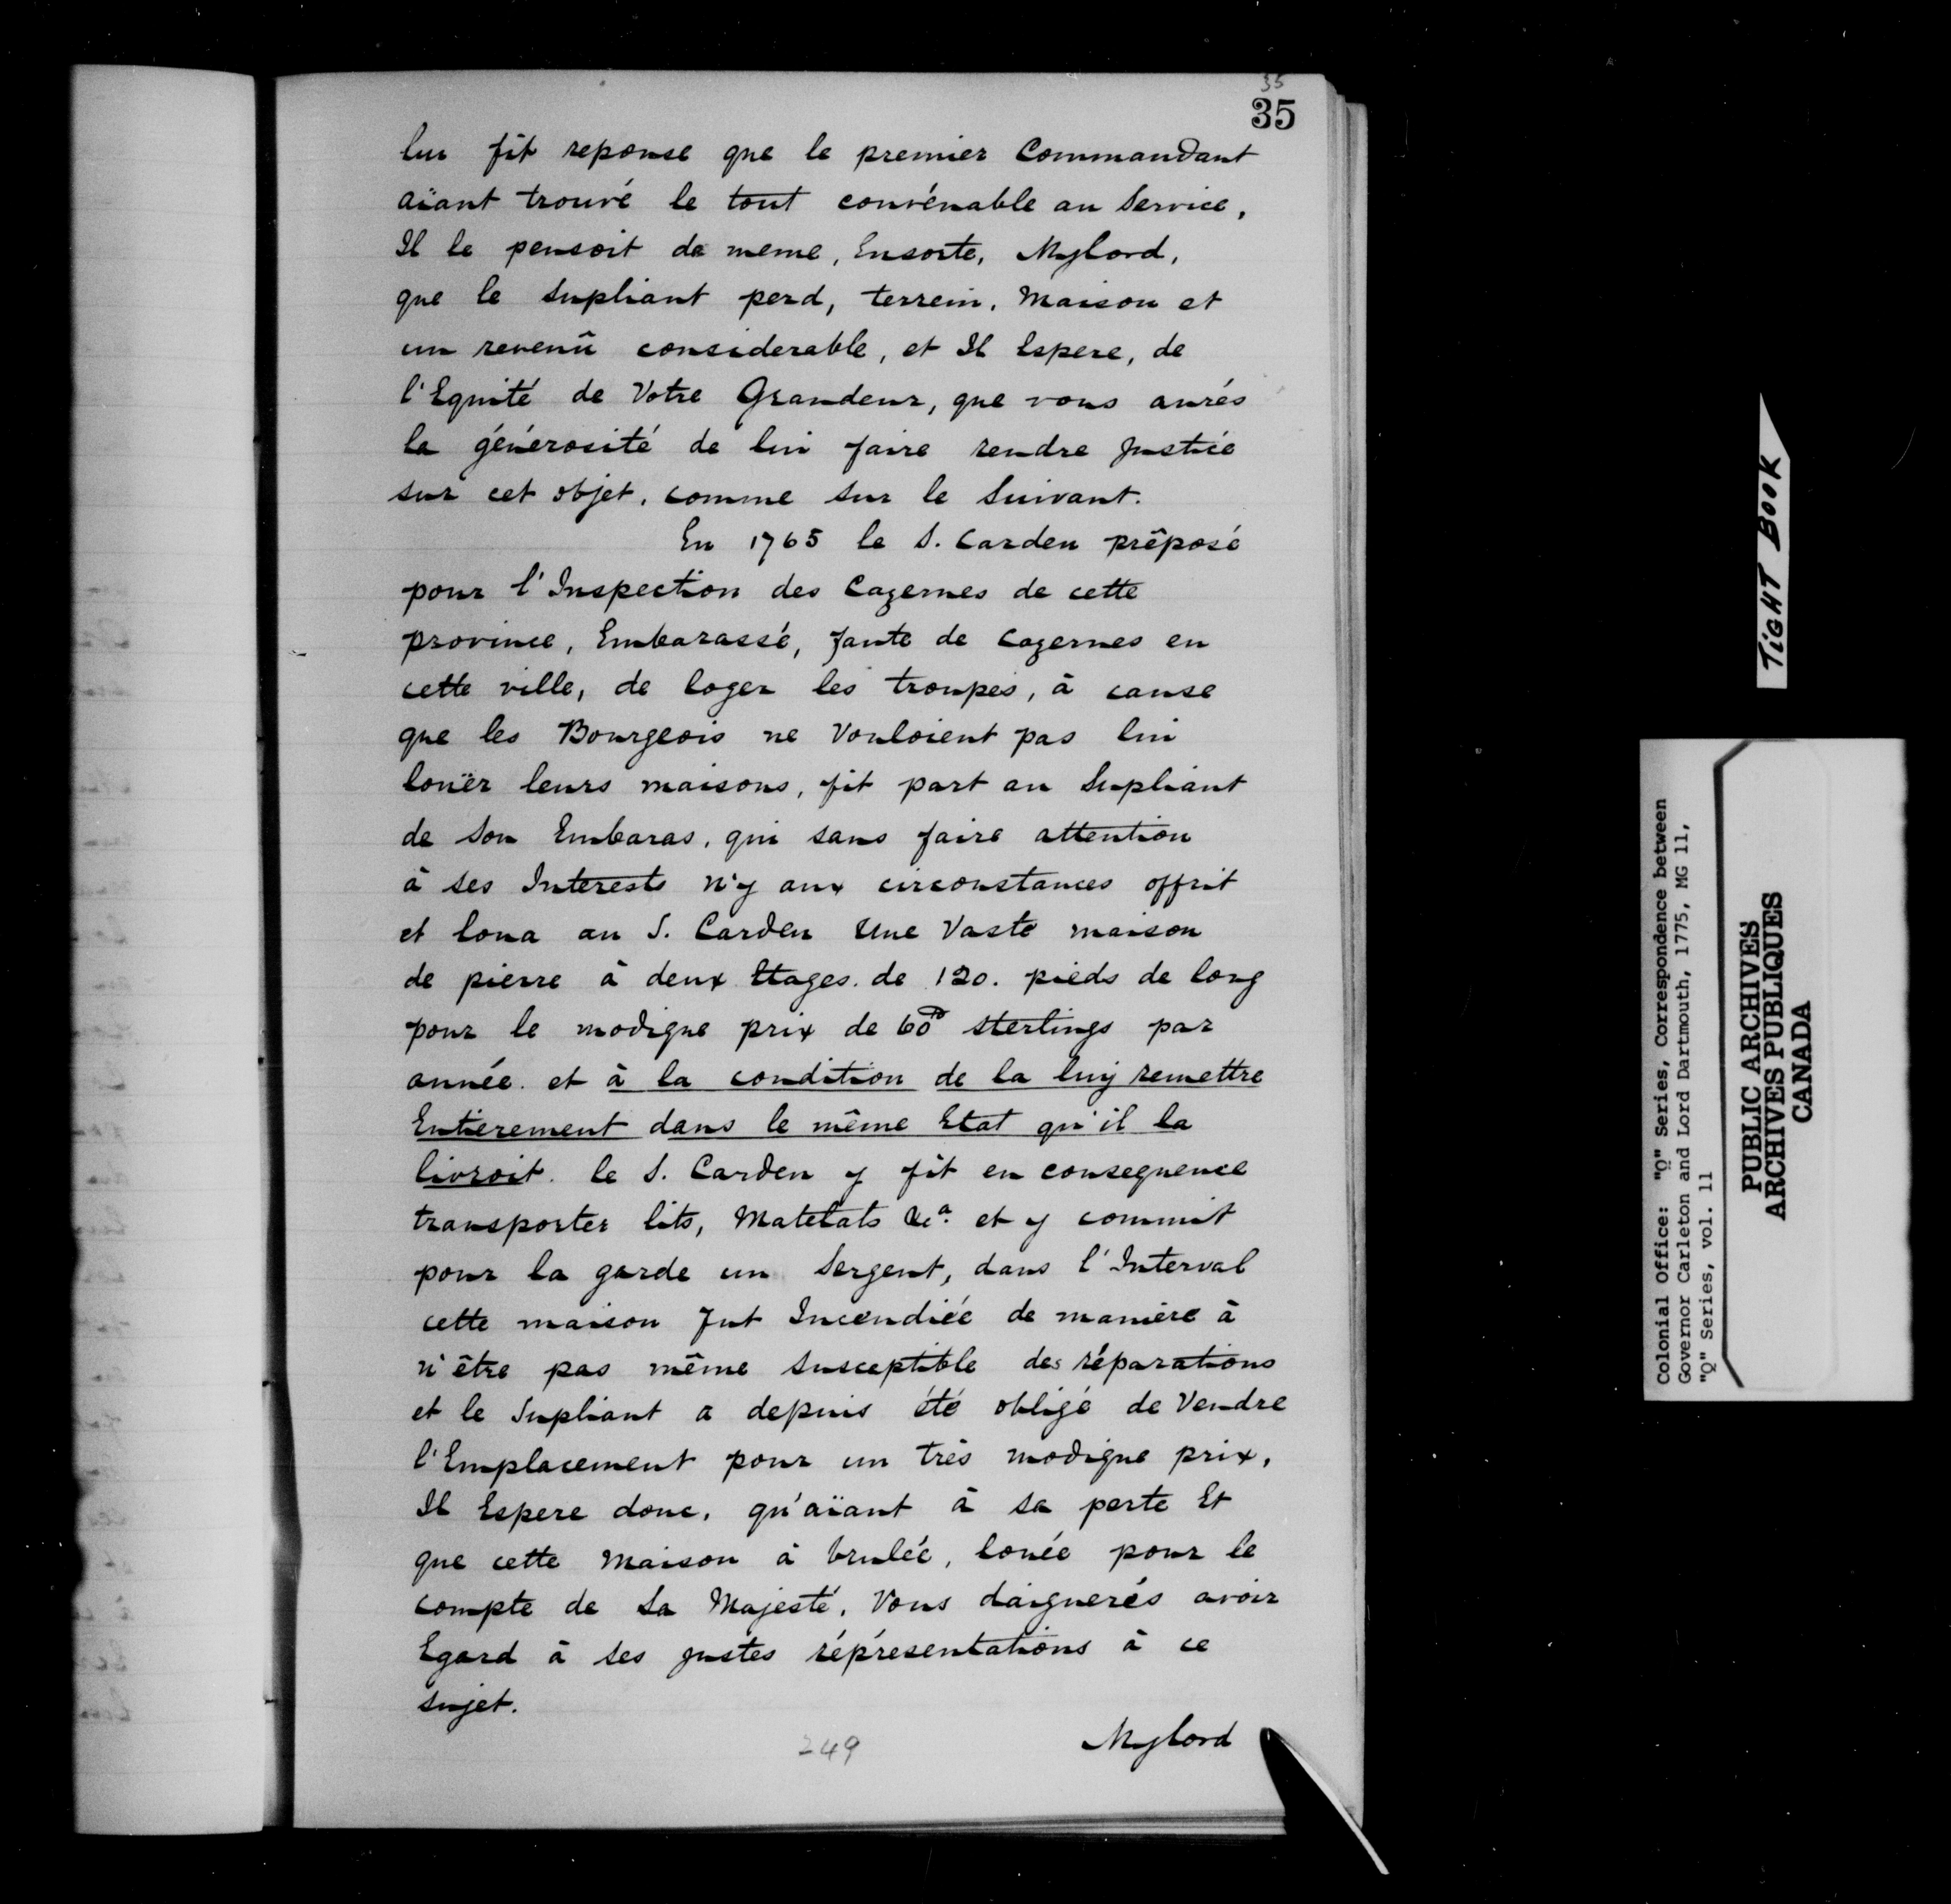 35
35
lui fit reponse que le premier Commandant
aïant trouvé le tout convénable au Service,
Il le pensoit de meme, Ensorte, Mylord,
que le Supliant perd, terrein, Maison et
un revenû considerable, et Il Espere, de
l'Equité de Votre Grandeur, que vous aurés
la générosité de lui faire rendre Justice
sur cet objet, comme sur le Suivant.
En 1765 le S. Carden prêposé
pour l'Inspection des Cazernes de cette
province, Embarassé, faute de Cazernes en
cette ville, de loger les troupes, à cause
que les Bourgeois ne Vouloient pas lui
louër leurs maisons, fit part au Supliant
de Son Embaras, qui sans faire attention
à ses Interests n'y aux circonstances offrit
et loua au S. Carden Une Vaste maison
de pierre à deux Etages de 120. pieds de long
pour le modique prix de 60 sterlings par
année. et à la condition de la luy remettre
Entierement dans le même Etat qu'il la
livroit. le S. Carden y fit en consequence
transporter lits, Matelats &ca. et y commit
pour la garde un Sergent, dans l'Interval
cette maison fut Incendiée de manière à
n'être pas même Susceptible des réparations
et le Supliant a depuis été obligé de Vendre
l'Emplacement pour un très modique prix,
Il Espere donc, qu'aïant à sa perte Et
que cette Maison à brulée, louée pour le
compte de Sa Majesté, Vous daignerés avoir
Egard à ses justes réprésentations à ce
sujet.
Mylord
249
TIGHT BOOK
Colonial Office: "Q" Series, Correspondence between
Governor Carleton and Lord Dartmouth, 1775, MG 11,
"Q" Series, vol. 11
PUBLIC ARCHIVES
ARCHIVES PUBLIQUES
CANADA